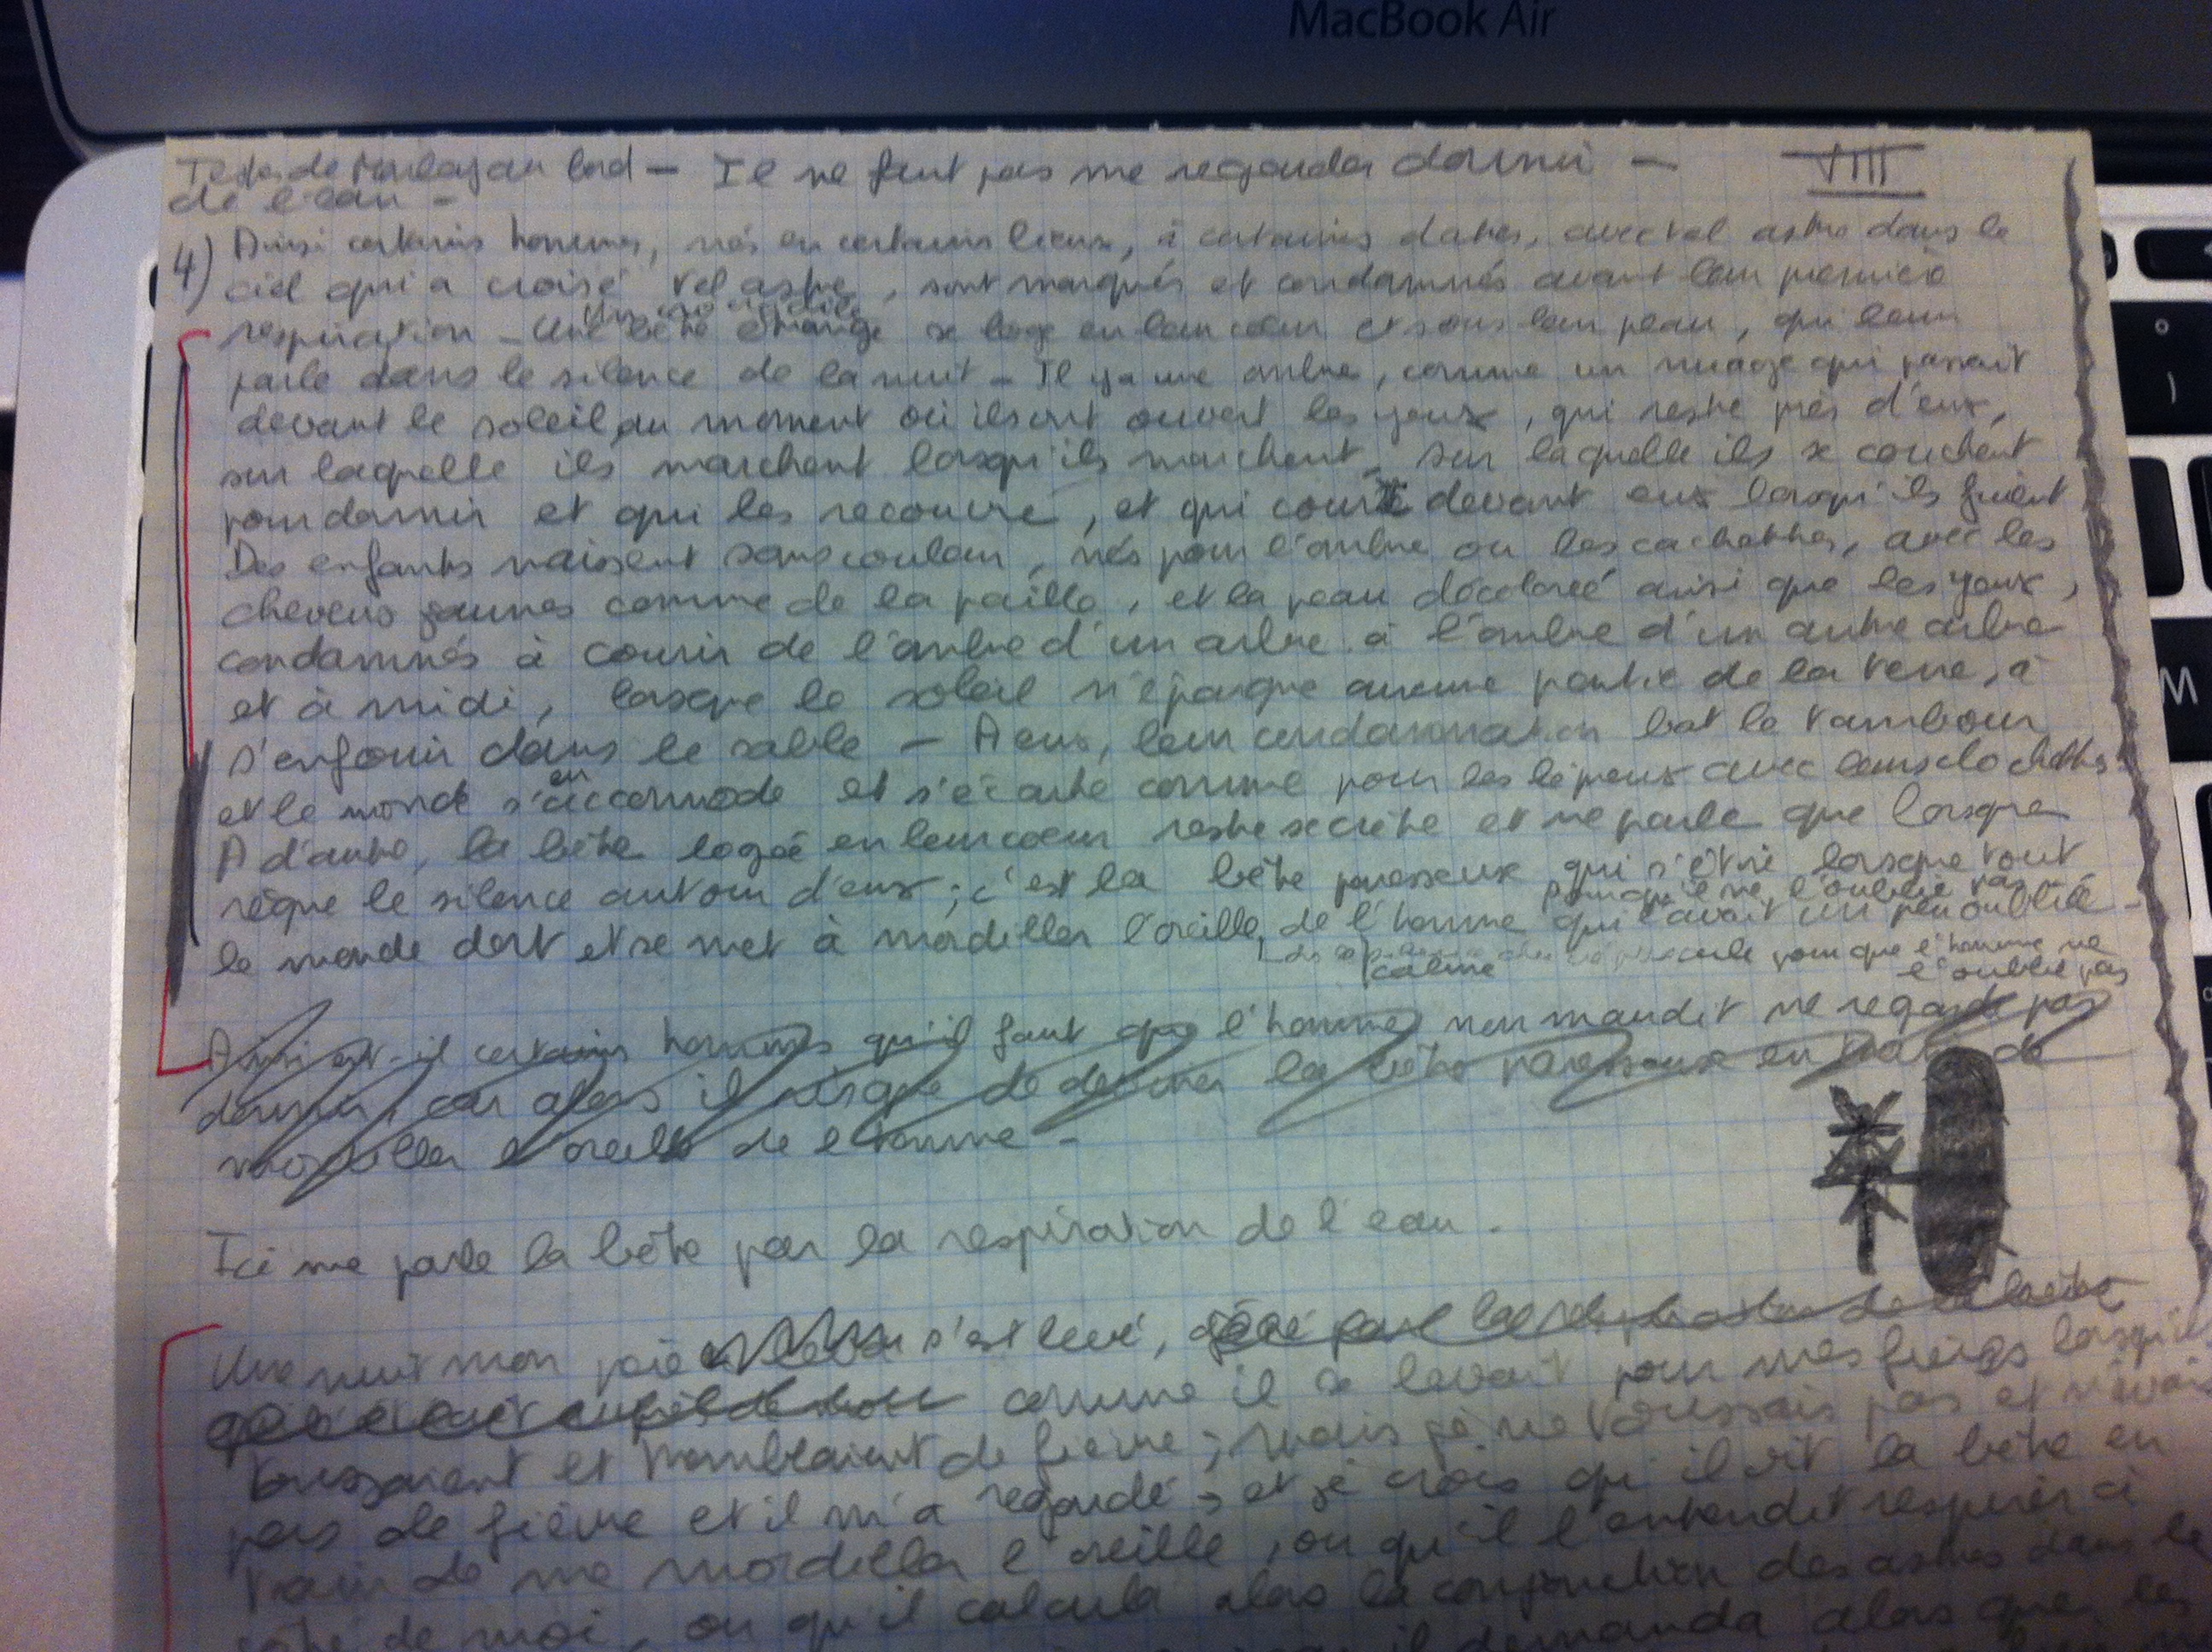 MacBook Air
Texte de au bord — Il ne faut pas me regarder dormir —
VIIII
de l'eau —
4) Ainsi certains hommes, nés en certains lieux, à certaines dates, avec tel astre dans le
ciel qui a croisé tel astre, sont marqués et condamnés avant leur première
respiration — Une bête étrange se loge en leur cœur et sous leur peau, qui leur
parle dans le silence de la nuit — Il y a une ombre, comme un nuage qui passait
devant le soleil au moment où ils ont ouvert les yeux, qui reste près d'eux,
sur laquelle ils marchent lorsqu'ils marchent, sur laquelle ils se couchent
pour dormir et qui les recouvre, et qui court devant eux lorsqu'ils fuient
Des enfants naissent sans couleur, nés pour l'ombre ou les cachettes, avec les
cheveux jaunes comme de la paille, et la peau décolorée ainsi que les yeux,
condamnés à courir de l'ombre d'un arbre à l'ombre d'un autre arbre
et à midi, lorsque le soleil n'épargne aucune partie de la terre, à
s'enfouir dans le sable — A eux, leur condamnation bat le tambour
en
et le monde s'accommode et s'écarte comme pour les lépreux avec leurs clochettes.
A d'autre, la bête logée en leur cœur reste secrète et ne parle que lorsque
règne le silence autour d'eux ; c'est la bête paresseuse qui s'étire lorsque tout
pour qu'il ne l'oublie pas
le monde dort et se met à mordiller l'oreille de l'homme qui l'avait un peu oubliée —
calme
pour que l'homme ne
l'oublie pas
Ainsi est-il certains hommes qu'il faut que l'homme non maudit ne regarde pas
dormir, car alors il risque de deviner la bête paresseuse en train de
mordiller l'oreille de l'homme —
Ici me parle la bête par la respiration de l'eau.
Une nuit mon père s'est levé, gêné par la respiration de la bête
comme il se levait pour mes frères lorsqu'il
toussaient et tremblaient de fièvre ; mais je ne toussais pas et n'avais
pas de fièvre et il m'a regardé ; et je crois qu'il vit la bête en
train de me mordiller l'oreille, ou qu'il l'entendit respirer à
côté de moi, ou qu'il calcula alors la conjonction des astres dans le
il demanda alors que les